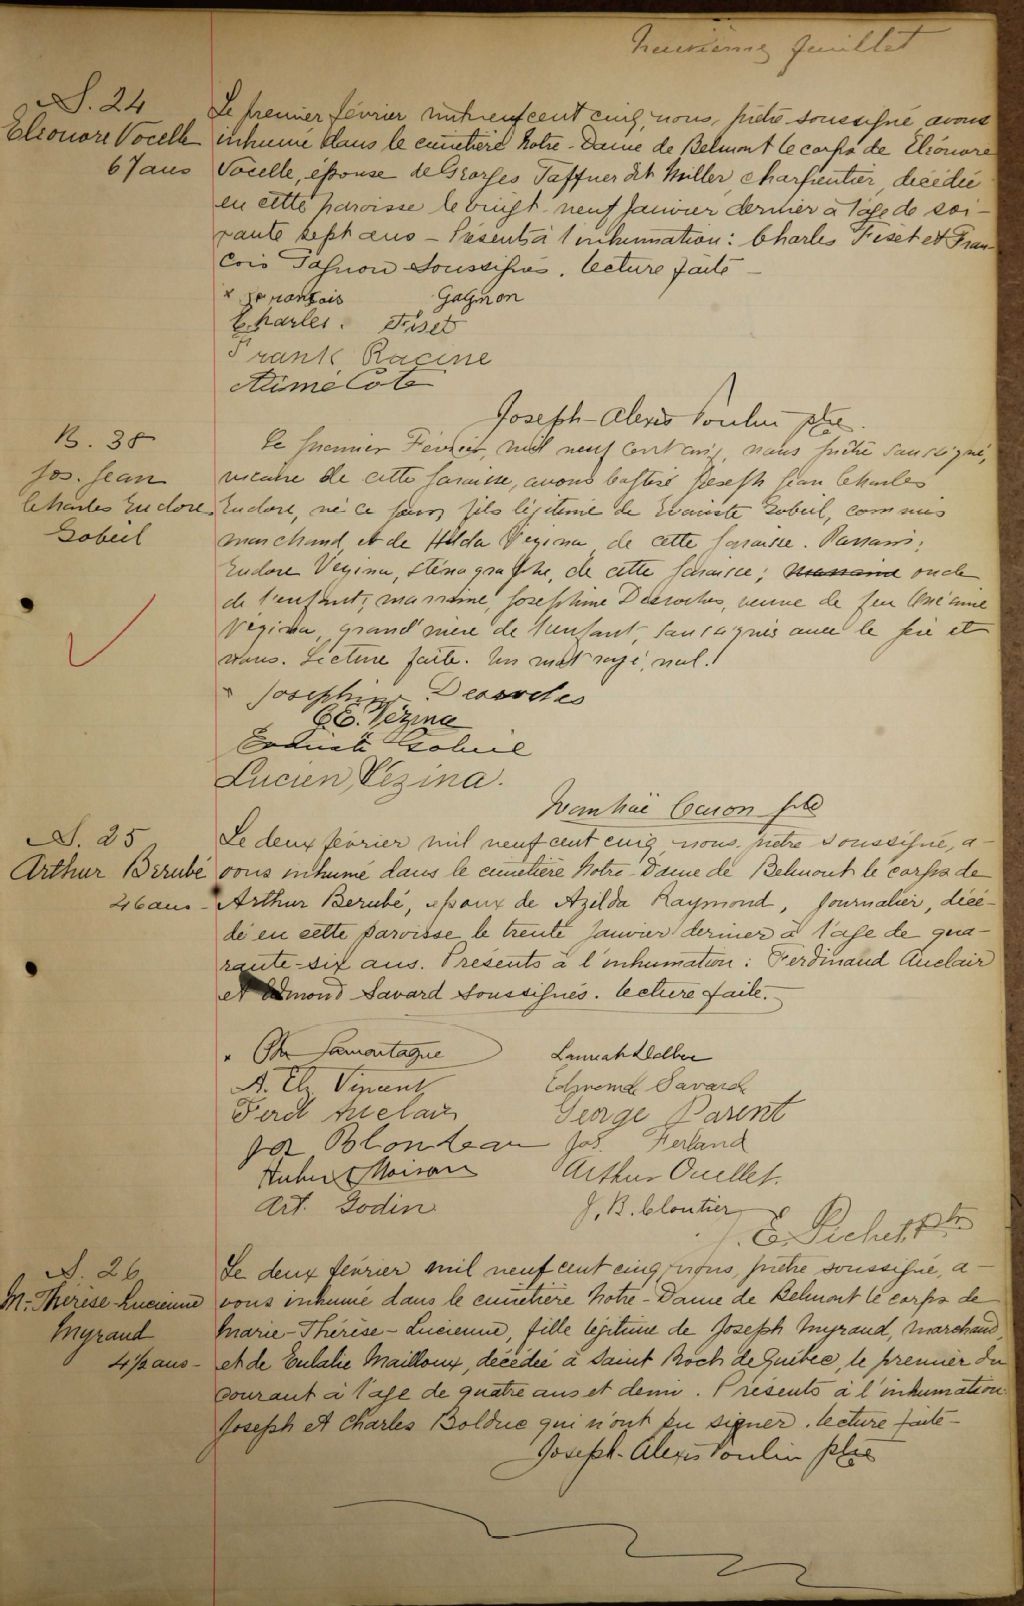 neuvième feuillet
S. 24
Eléonore Vocelle
67 ans
Le premier février mil neuf cent cinq, nous, prêtre soussigné avons
inhumé dans le cimetière Notre-Dame de Belmont le corps de Eléonore
Vocelle, épouse de Georges Taffner dit Miller, charpentier, décédée
en cette paroisse le vingt-neuf janvier dernier à l'age de soi-
xante sept ans - Présents à l'inhumation: Charles Fiset et Fran-
çois Gagnon soussignés. lecture faite -
x François Gagnon
Charles. Fiset
Frank Racine
Aimé Coté
Joseph-Alexis Poulin ptre.
B. 38
Jos. Jean
Charles Eudore
Gobeil
Le premier Février, mil neuf cent cinq, nous prêtre soussigné,
vicaire de cette paroisse, avons baptisé Joseph Jean Charles
Eudore, né ce jour, fils légitime de Evariste Gobeil, commis
marchand, et de Hilda Vézina, de cette paroisse. Parrain;
Eudore Vezina, sténographe, de cette paroisse; marraine oncle
de l'enfant; marraine, Joséphine Desroches, veuve de feu
Vézina, grand'mère de l'enfant, soussignés avec le père et
nous. Lecture faite. Un mot rayé, nul.
x Josephine Desroches
C.E. Vézina
Evariste Gobeil
Lucien Vézina.
Ivanhoë Caron ptre
S. 25
Arthur Berubé
46 ans -
Le deux février mil neuf cent cinq nous, prêtre soussigné, a-
vons inhumé dans le cimetière Notre-Dame de Belmont le corps de
Arthur Berubé, époux de Azilda Raymond, journalier, décé-
dé en cette paroisse le trente janvier dernier à l'age de qua-
rante-six ans. Présents à l'inhumation: Ferdinand Auclair
et Edmond Savard soussignés. lecture faite. -
x Lamontagne
A. Elz Vincent Edmond Savard
Ferd Auclair George Parent
Jos Blondeau Jos. Ferland
Moisan Arthur Ouellet.
Art. Godin J. B. Cloutier
E. Pichet, Ptre
S. 26
M.-Thérèse-Lucienne
Myrand
4½ ans -
Le deux février mil neuf cent cinq, nous, prêtre soussigné, a-
vons inhumé dans le cimetière Notre-Dame de Belmont le corps de
Marie-Thérèse-Lucienne, fille légitime de Joseph Myrand, marchand,
et de Eulalie Mailloux, décédée à Saint Roch de Québec, le premier du
courant à l'age de quatre ans et demi. Présents à l'inhumation:
Joseph et Charles Bolduc qui n'ont pu signer. lecture faite -
Joseph-Alexis Poulin ptre